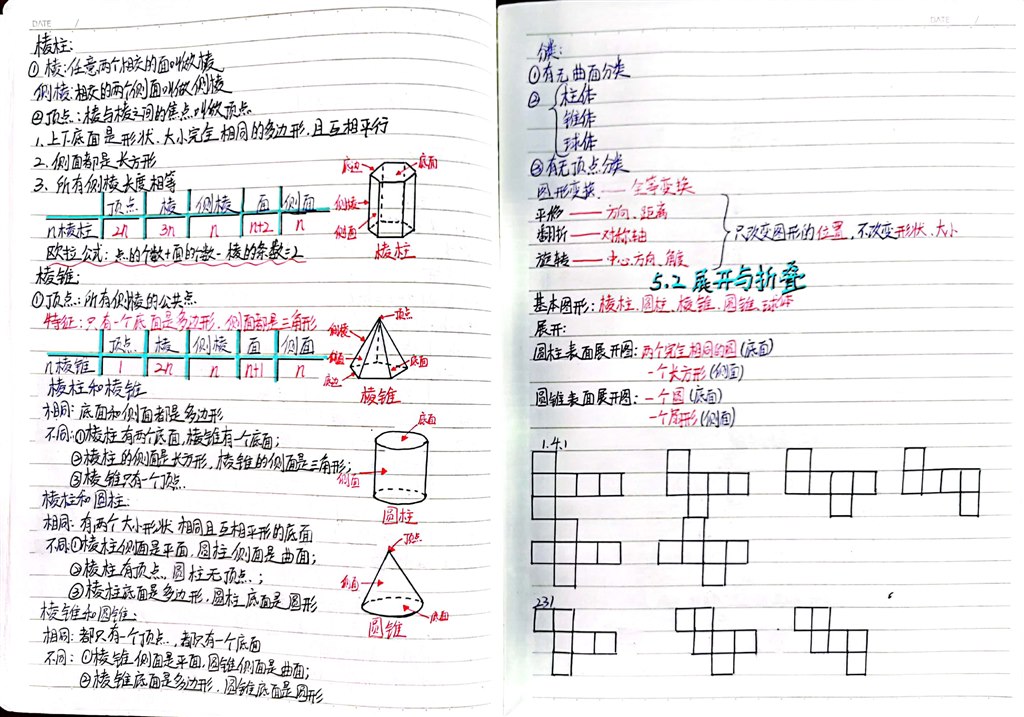 DATE /
棱柱:
① 棱:任意两个相交的面叫做棱
侧棱:相交的两个侧面叫做侧棱
②顶点:棱与棱之间的焦点叫做顶点
1.上下底面是形状、大小完全相同的多边形,且互相平行
2.侧面都是长方形
3.所有侧棱长度相等
底边 底面
侧棱
侧面
棱柱
顶点 棱 侧棱 面 侧面
n棱柱 2n 3n n n+2 n
欧拉公式:点的个数+面的个数-棱的条数=2
棱锥:
①顶点:所有侧棱的公共点
特征:只有一个底面是多边形,侧面都是三角形
顶点 棱 侧棱 面 侧面
n棱锥 1 2n n n+1 n
顶点
侧棱
侧面
底边 底面
棱锥
棱柱和棱锥
相同:底面和侧面都是多边形
不同:①棱柱有两个底面,棱锥有一个底面;
②棱柱的侧面是长方形,棱锥的侧面是三角形;
③棱锥只有一个顶点.
底面
侧面
圆柱
棱柱和圆柱:
相同:有两个大小形状相同且互相平形的底面
不同:①棱柱侧面是平面,圆柱侧面是曲面;
②棱柱有顶点,圆柱无顶点.;
③棱柱底面是多边形,圆柱底面是圆形
顶点
侧面
底面
圆锥
棱锥和圆锥:
相同:都只有一个顶点.,都只有一个底面
不同:①棱锥侧面是平面,圆锥侧面是曲面;
②棱锥底面是多边形,圆锥底面是圆形
DATE /
分类:
①有无曲面分类
② 柱体
锥体
球体
③有无顶点分类
图形变换.—— 全等变换
平移 —— 方向、距离
翻折 —— 对称轴
旋转 —— 中心、方向、角度
只改变图形的位置,不改变形状、大小
5.2 展开与折叠
基本图形:棱柱、圆柱、棱锥、圆锥、球体
展开:
圆柱表面展开图:两个完全相同的圆(底面)
一个长方形(侧面)
圆锥表面展开图:一个圆(底面)
一个扇形(侧面)
1.4.1
231